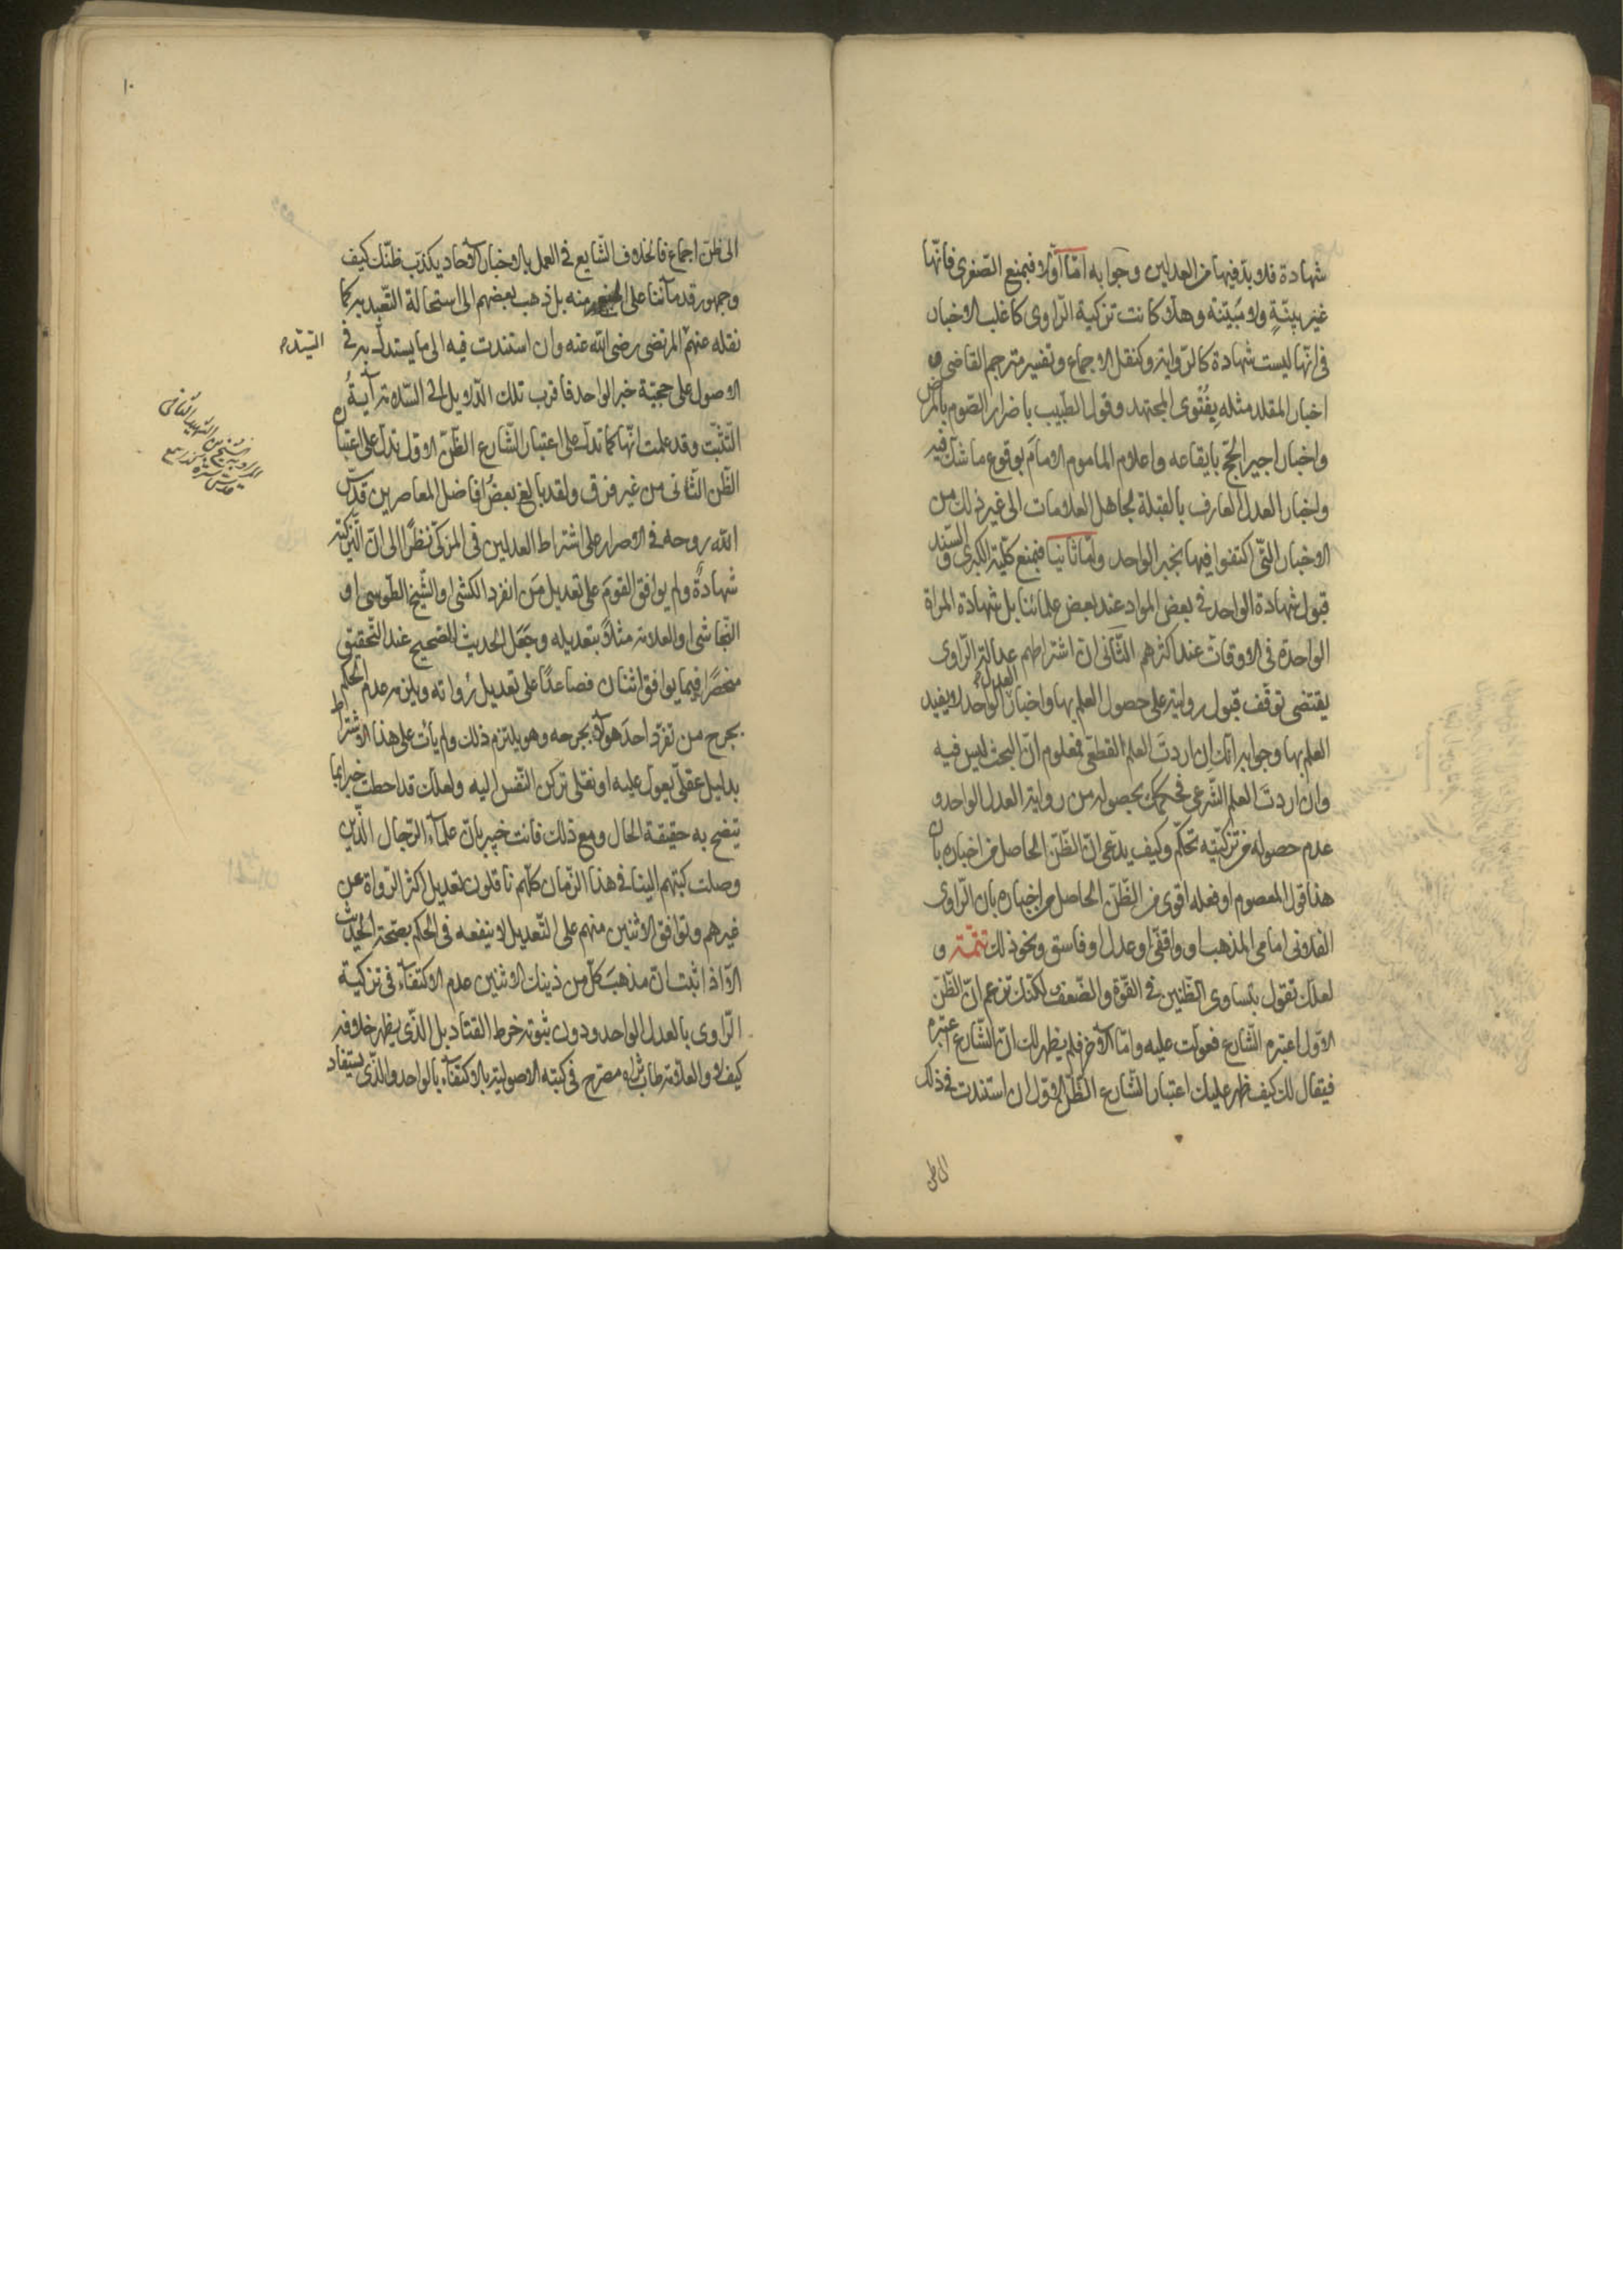 شهادة فلا بد فيها من العدلين وجوابه امّا اوّلا فبمنع الصّغرى فانّها
غير بيّنةٍ ولا مُبَيّنة وهلّا كانت تزكية الرّاوى كاغلب الاخبار
فى انّها ليست شهادة كالرّواية وكنقل الاجماع وتفسير مترجم القاضى و
اخبار المقلد مثله بِفَتْوى المجتهد وقول الطّبيب باضرار الصّوم بالمرض
واخبار اجير الحجّ بايقاعه واعلام الماموم الامامَ بوقوع ما شك فيه
واخبار العدل العارف بالقبلة لجاهل العلامات الى غير ذلك من
الاخبار التّى اكتفوا فيها بخبر الواحد وامّا ثانيا فبمنع كلّية الكبرى والسّند
قبول شهادة الواحد فى بعض المواد عند بعض علمائنا بل شهادة المراة
الواحدة فى الاوقات عند اكثرهم الثّانى ان اشتراطهم عدالة الرّاوى
يقتضى توقّف قبول روايته على حصول العلم بها واخبار العدل الواحد لا يفيد
العلم بها وجوابه انّك إن اردتَ العلم القطعى فمعلوم انّ البحث ليس فيه
وان اردتَ العلم الشّرعى فحكمك بحصوله من رواية العدل الواحد و
عدم حصوله من تزكيته تحكّم وكيف يدّعى انّ الظّنّ الحاصل من اخباره بان
هذا قول المعصوم او فعله اقوى من الظّنّ الحاصل من اخباره بان الرّاوى
الفلانى امامى المذهب او واقفى او عدل او فاسق ونحو ذلك تتمّة و
لعلك تقول بتساوى الظّنين فى القوّة والضّعف لكنك تزعم انّ الظّنّ
الاوّل اعتبره الشّارع فعولت عليه وامّا الآخر فلم يظهر لك انّ الشّارع اعتبره
فيقال لك كيف ظهر عليك اعتبار الشّارع الظّنّ الاوّل ان استندت فى ذلك
الى ظن
١٠
الى ظنّ اجماع فالخلاف الشّايع فى العمل بالاخبار الآحاد يكذب ظنّك كيف
وجمهور قدمآئنا على المنع منه بل ذهب بعضهم الى استحالة التّعبد به كما
نقله عنهم المرتضى رضى اللّه عنه وان استندت فيه الى ما يستدلّ به فى
الاصول على حجيّة خبر الواحد فاقرب تلك الدّلايل الى السّلامة آيةُ
التّثبّت وقد علمت انّها كما تدلّ على اعتبار الشّارع الظّنّ الاوّل تدلّ على اعتباره
الظّن الثّانى من غير فرق ولقد بالغ بعضُ افاضل المعاصرين قدّس
اللّه روحه فى الاصرار على اشتراط العدلين فى المزكّى نظرًا الى انّ التّزكية
شهادةٌ ولم يوافق القومَ على تعديل مَن انفرد الكشى او الشّيخ الطّوسى او
النّجاشى او العلامة مثلاً بتعديله وجَعَل الحديث الصّحيح عند التّحقيق
منحصرًا فيما يوافق اثنان فصاعدًا على تعديل رُواته ويلزمه عدم الحكم
بجرح من تفرّد احد هؤلآء بجرحه وهو يلتزم ذلك ولم يأت على هذا الاشتراط
بدليل عقلىّ يعول عليه او نقلى تركن النّفس اليه ولعلك قد احطت خبرا بما
يتضح به حقيقة الحال ومع ذلك فانت خبير بانّ علمآء الرّجال الّذين
وصلت كتبهم الينا فى هذا الزّمان كلّهم ناقلون لتعديل اكثر الرواة عن
غيرهم وتوافق الاثنين منهم على التّعديل لا ينفعه فى الحكم بصحّة الحديث
الّا اذا ثبت انّ مذهبَ كلّ من ذينك الاثنين عدم الاكتفاء فى تزكية
الرّاوى بالعدل الواحد ودون ثبوته خرط القتاد بل الّذى يظهر خلافه
كيف لا والعلّامة طاب ثراه مصرّح فى كتبه الاصولية بالاكتفآء بالواحد والّذى يستفاد